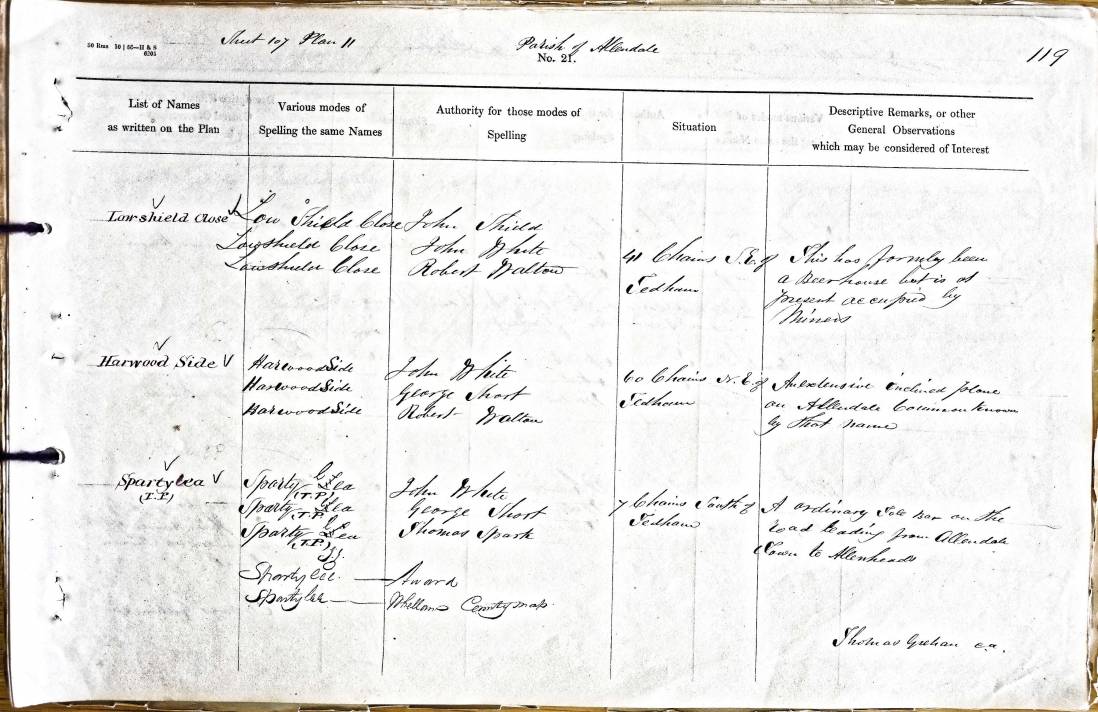 50 Rms 10 | 56—H & S
6205
Sheet 107 Plan 11
Parish of Allendale
No. 21.
119
List of Names
as written on the Plan
Various modes of
Spelling the same Names
Authority for those modes of
Spelling
Situation
Descriptive Remarks, or other
General Observations
which may be considered of Interest
Lowshield Close
Low Shield Close
John Shield
Lowshield Close
John White
Lowshield Close
Robert Walton
41 Chains S.E. of
Tedham
This has formley been
a Beerhouse but is at
present accupied by
Miners
Harwood Side
Harwood Side
John White
Harwood Side
George Short
Harwood Side
Robert Walton
60 Chains N.E. of
Tedham
An extensive inclined plane
on Allendale Common known
by that name
Spartylea
(T.P.)
Sparty Lea
(T.P.)
John White
Sparty Lea
(T.P.)
George Short
Sparty Lea
(T.P.)
Thomas Spark
Spartylee
Award
Spartylee
Whellans County map
7 Chains South of
Tedham
A ordinary Tole Bar on the
road leading from Allendale
Town to Allenheads
Thomas ca.